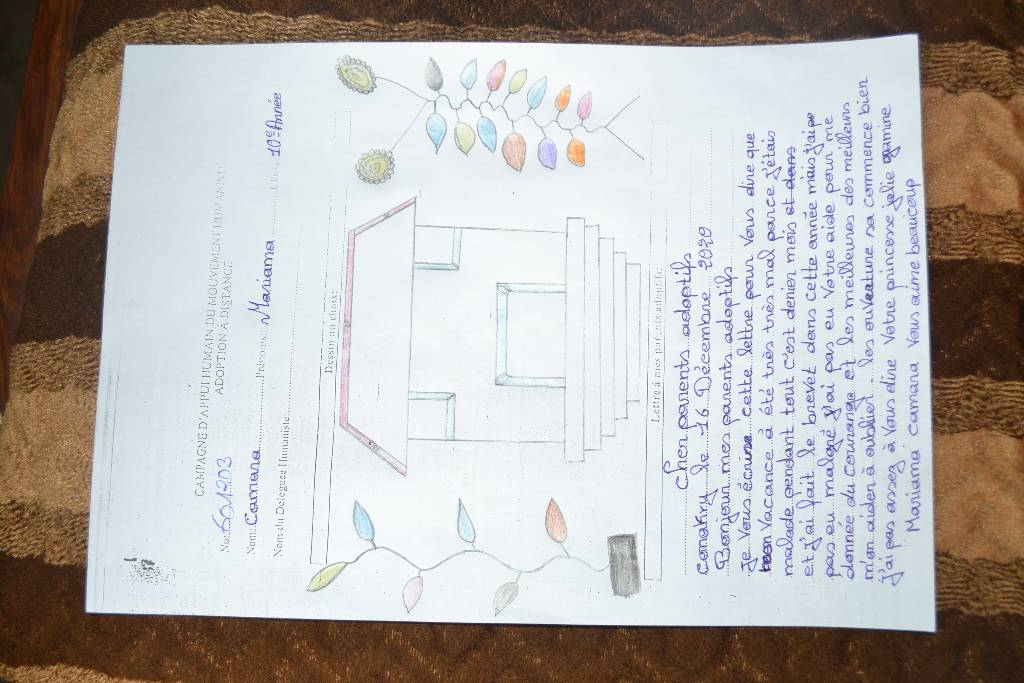 CAMPAGNE D'APPUI HUMAIN DU MOUVEMENT HUMANISTE
ADOPTION À DISTANCE
No: 601203
Nom: Camara Prénoms: Mariama Classe: 10e Année
Nom du Délégué Humaniste:
Dessin au choix:
Lettre à mes parents adoptifs:
Cher parents adoptifs
Conakry le 16 Décembre 2020
Bonjour mes parents adoptifs
Je vous écrine cette lettre pour vous dire que
Vacance à été très très mal parce j'étais
malade pendant tout c'est denier mois et dans
et j'ai fait le brevet dans cette année mais j'ai
pas eu malgré j'ai pas eu Votre aide pour me
donnée du courange et les meilleures des meilleurs
m'on aiden à oublier les ouverture sa commence bien
j'ai pas assez à Vous dire Votre princesse jolie gamine
Mariama camara Vous aime beaucoup